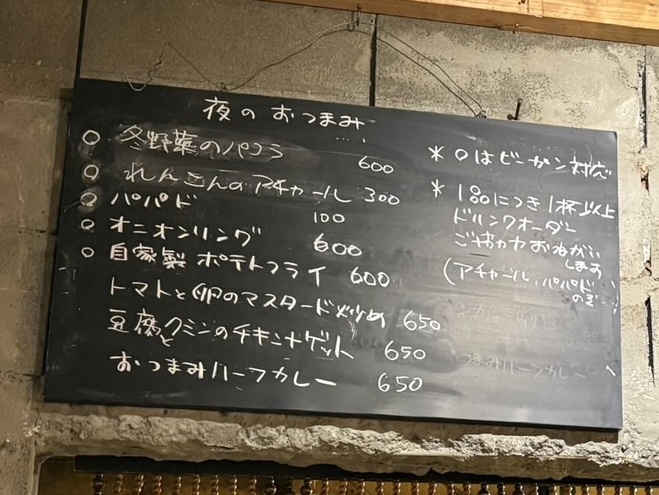 夜のおつまみ
○ 冬野菜のパコラ 600
○ れんこんのアチャール 300
○ パパド 100
○ オニオンリング 600
○ 自家製ポテトフライ 600
トマトと卵のマスタード炒め 650
豆腐とクミンのチキンナゲット 650
おつまみハーフカレー 650
* ○はビーガン対応
* 1品につき1杯以上
ドリンクオーダー
ご協力おねがい
します
(アチャール、パパド
のぞ